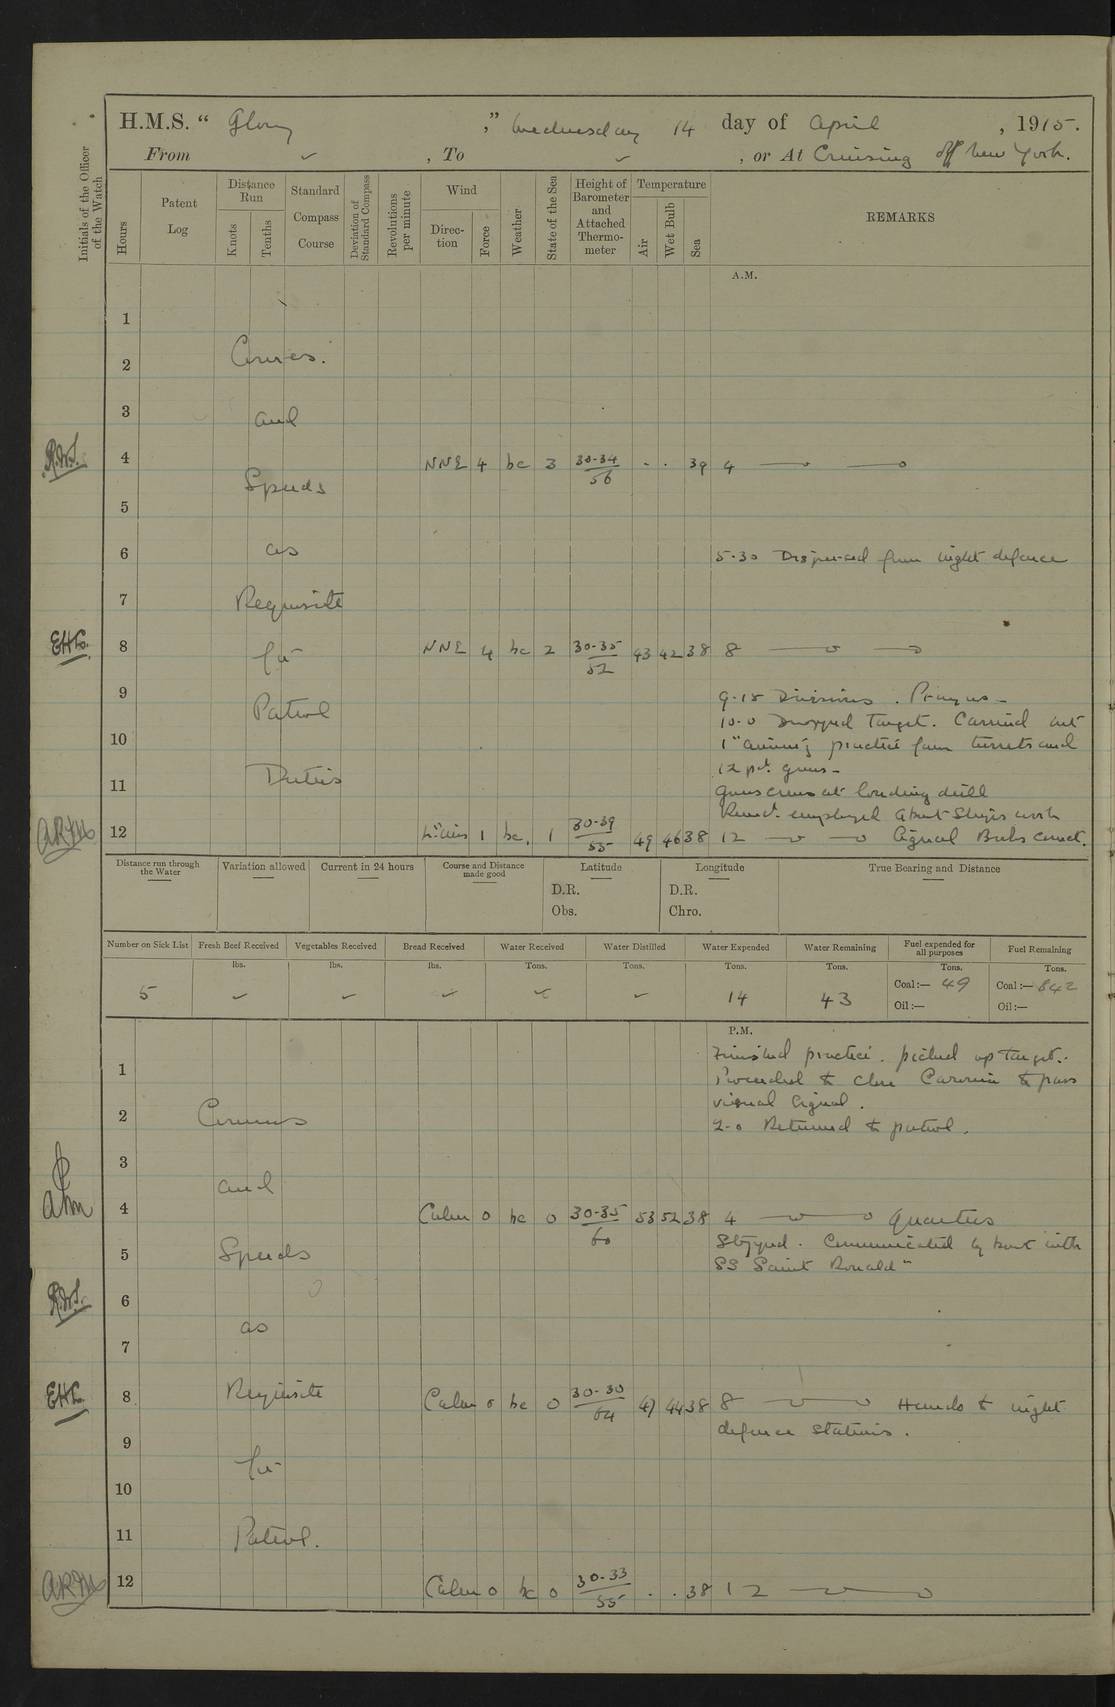 H.M.S. “ Glory ,” Wednesday 14 day of April , 1915.
From ✓ , To ✓ , or At Cruising off New York.
Initials of the Officer of the Watch
Hours
Patent Log
Distance Run
Knots
Tenths
Standard Compass Course
Deviation of Standard Compass
Revolutions per minute
Wind
Direction
Force
Weather
State of the Sea
Height of Barometer and Attached Thermometer
Temperature
Air
Wet Bulb
Sea
REMARKS
A.M.
1
2 Courses
3 and
R.W.S. 4 NNE 4 bc 3 30-34 56 . . 39 4
Speeds
5
6 as 5-30 Dispersed from night defence
7 Requisite
8 for NNE 4 bc 2 30-35 52 43 42 38 8
9 Patrol 9-15 Divisions. Prayers -
10-0 Dropped Target. Carried out
10 1" aiming practice from turrets and
12 pdr. guns -
11 Duties Guns crews at loading drill
Remdr. employed about Ships work
12 1 bc. 1 30-39 55 49 46 38 12 Signal Books correct.
Distance run through the Water
Variation allowed
Current in 24 hours
Course and Distance made good
Latitude
D.R.
Obs.
Longitude
D.R.
Chro.
True Bearing and Distance
Number on Sick List
Fresh Beef Received
Vegetables Received
Bread Received
Water Received
Water Distilled
Water Expended
Water Remaining
Fuel expended for all purposes
Fuel Remaining
lbs. lbs. lbs. Tons. Tons. Tons. Tons. Tons. Tons.
5 ✓ ✓ ✓ ✓ ✓ 14 43 Coal:— 49 Coal:— 842
Oil:— Oil:—
P.M.
Finished practice. picked up Target.
1 Proceeded to close Caronia to pass
visual signal.
2 Courses 2-0 Returned to patrol.
3 and
4 Calm 0 bc 0 30-35 60 53 52 38 4 Quarters
5 Speeds Stopped. Communicated by boat with
SS Saint Ronald"
R.W.S. 6
as
7
8 Requisite Calm 0 bc 0 30-30 64 47 44 38 8 Hands to night
defence stations.
9 for
10
11 Patrol.
12 Calm 0 bc 0 30-33 55 . . 38 12